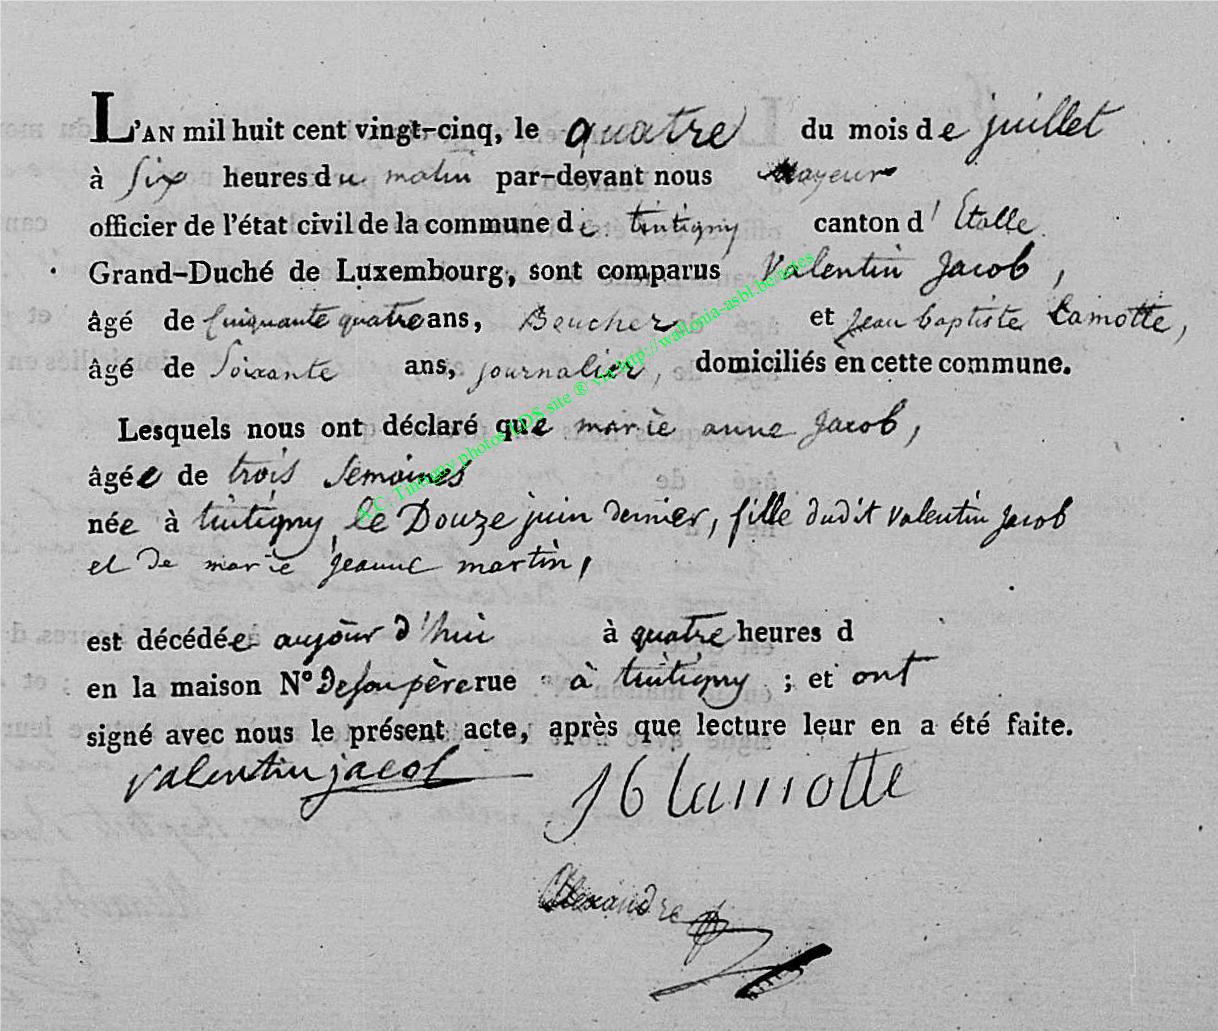 L'AN mil huit cent vingt-cinq, le quatre du mois de juillet
à six heures du matin par-devant nous Mayeur
officier de l'état civil de la commune de tintigny canton d'Etalle
Grand-Duché de Luxembourg, sont comparus Valentin Jacob,
âgé de Cinquante quatre ans, et jean baptiste Lamotte,
âgé de Soixante ans, journalier, domiciliés en cette commune.
Lesquels nous ont déclaré que marie anne Jacob,
âgée de trois Semaines
née à tintigny, le Douze juin dernier, fille dudit valentin jacob
et De marie jeanne martin,
est décédée aujour d'hui à quatre heures d
en la maison N° De son père rue " à tintigny ; et ont
signé avec nous le présent acte, après que lecture leur en a été faite.
valentin jacob
J b lamotte
Alexandre
A.C. Tintigny photos LDS site ® via http://wallonia-asbl.be/actes